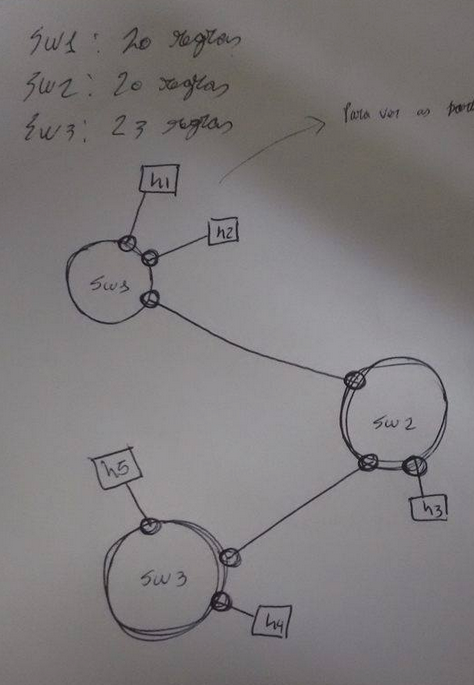 Sw1: 20 regras
Sw2: 20 regras
Sw3: 23 regras
Para ver as
h1
h2
Sw1
Sw2
h5
h3
Sw3
h4